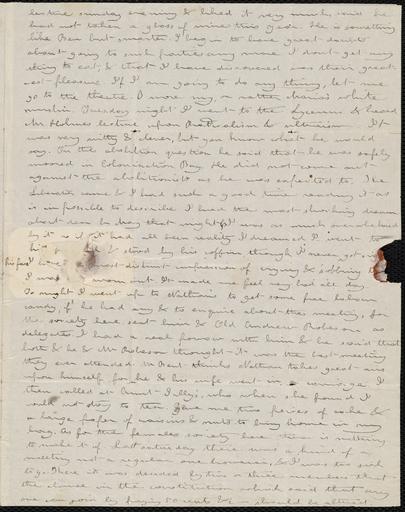 lecture sunday evening & liked it very much, said he
had not taken a glass of wine this year. He is something
like Ben but smarter. I begin to have great doubts
about going to such parties any more I don't get any
thing to eat, & that I have discovered was their great-
est pleasure. If I am going to do any thing, let me
go to the theatre. O more my, a white
muslin. Tuesday night I went to the Lyceum & heard
Mr Holmes lecture upon & ultraism. It
was very witty & clever, but you know what he would
say. On the abolition question he said that he was safely
moored in Colonization Bay. He did not come out
against the abolitionists as he was expected to. The
came & I had such a good time reading it as
is impossible to describe. I had the most shocking dream
about dear that night & I was as much overwhelmed
by it as if it had all been reality. I dreamed I went to
his & stood by his coffin though I never got
his face I had a most distinct impression of crying & sobbing
I was worn out. It made me feel very bad all day
To night I went up to Nathan's to get some free labour
candy, if he had any & to enquire about the meeting, for
the society here sent him & Old Andrew Robeson as
delegates. I had a real with him & he said that
both he & Mr Robeson thought it was the best meeting
they ever attended. Nathan takes great airs
upon himself for he & his wife went in a carriage. I
then called at Aunt who when she found I
could not stay to tea gave me two pieces of cake &
a large paper of raisins & nuts to bring home in my
bag. As for the female society here there is nothing
to make it of last saturday there was a kind of a
meeting not a regular one however, & I was too sick
to go. There it was decided by two or three members that
the clause in the constitution which said that any
one can join by paying 50 cents &c - should be altered